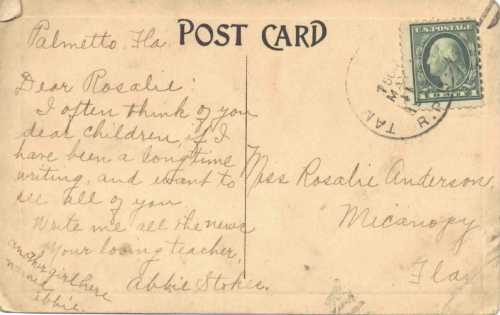 POST CARD
Palmetto, Fla.
Dear Rosalie:
I often think of you
dear children, if I
have been a long time
writing, and want to
see all of you
Write me all the news
Your loving teacher,
Abbie Stokes.
another girl here
named
Abbie.
Miss Rosalie Anderson
Micanopy
Fla.
U.S. POSTAGE
1 CENT 1
TAM
R.P.